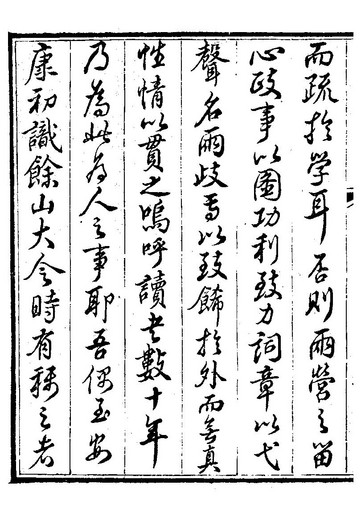 而疏於学耳否則兩營之留
心歧事以圖功利致力詞章以弋
聲名兩歧焉以致餙於外而無真
性情以貫之嗚呼讀書數十年
乃為此為人之事耶吾偶至安
康初識餘山大令時有稱之者